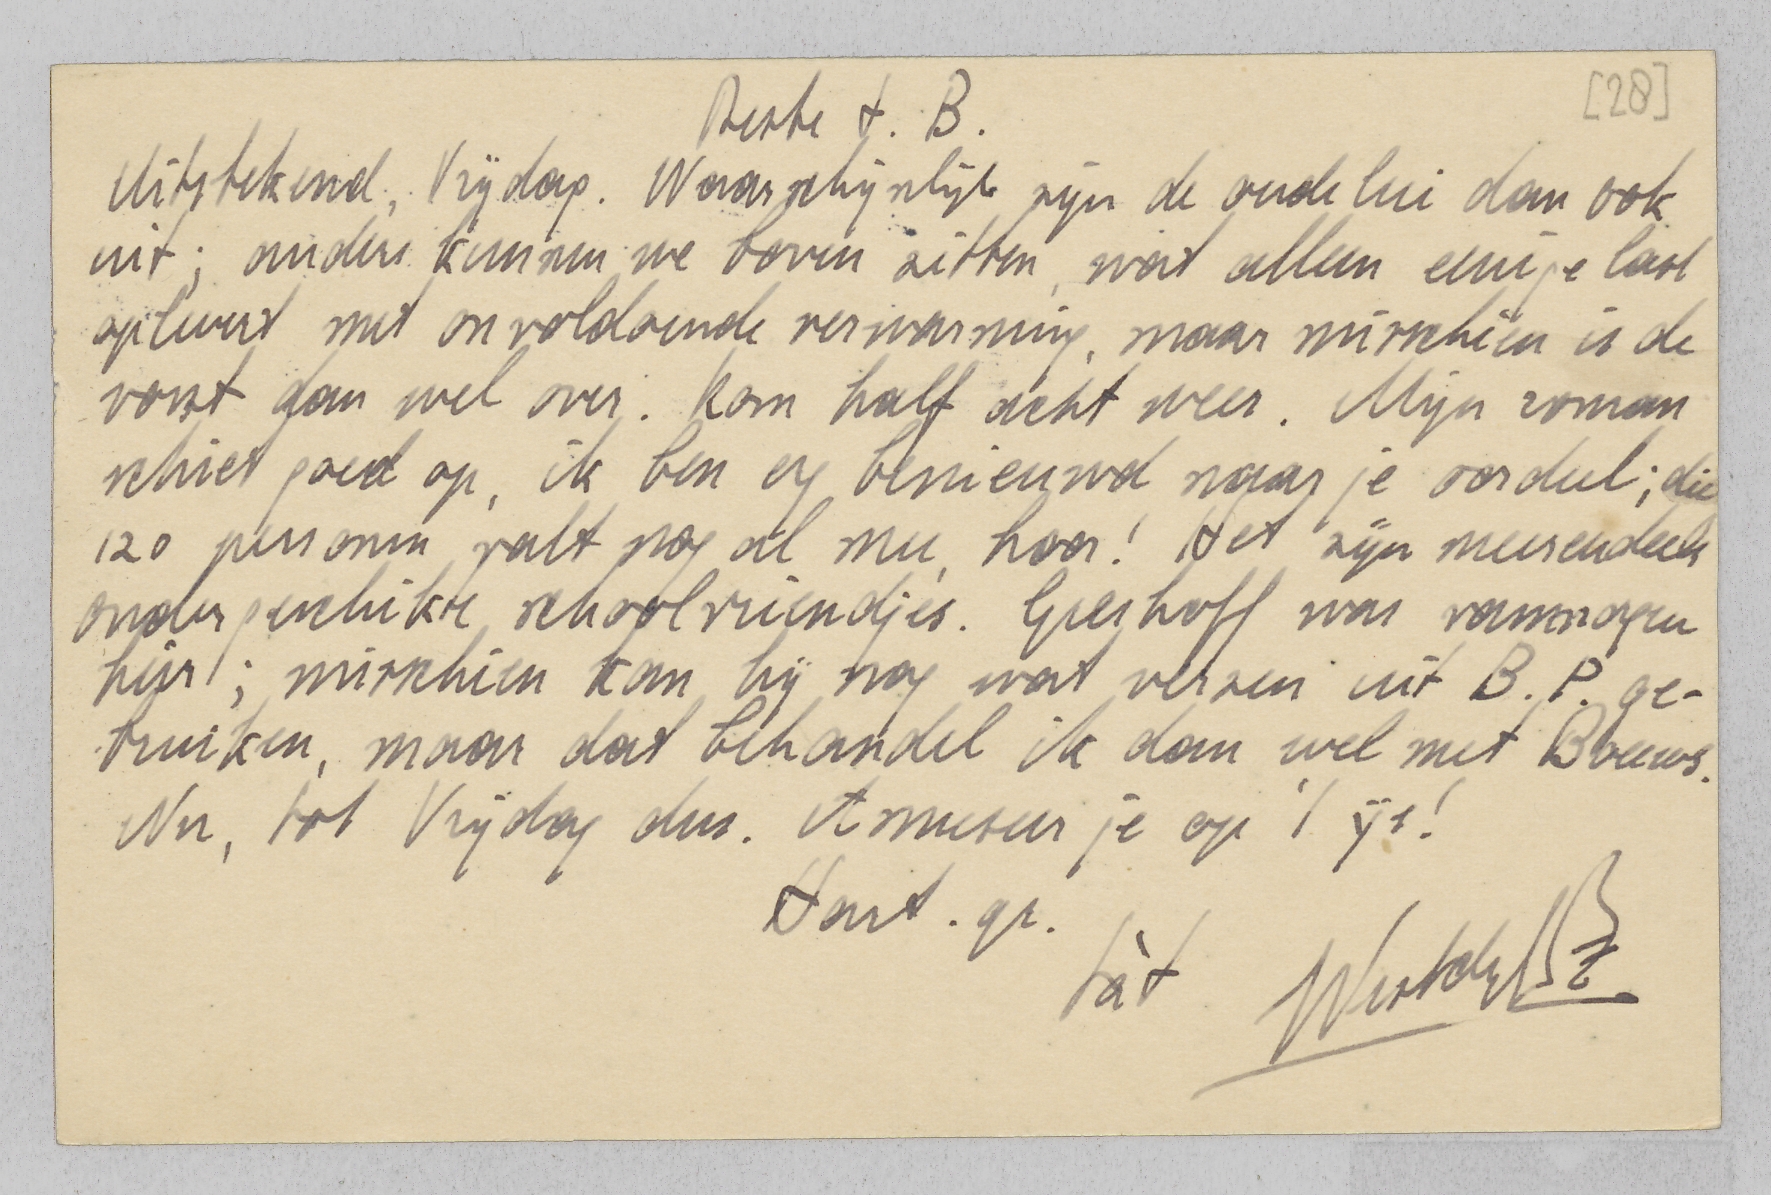 [28]
Beste t. B.
Uitstekend, Vrijdag. Waarschijnlijk zijn de oude lui dan ook
uit; anders kunnen we boven zitten, wat alleen eenige last
oplevert met onvoldoende verwarming, maar misschien is de
vorst dan wel over. Kom half acht weer. Mijn roman
schiet goed op, ik ben erg benieuwd naar je oordeel; die
120 personen valt nog al mee, hoor! Het zijn meerendeels
ondergeschikte schoolvriendjes. Greshoff was vanmorgen
hier; misschien kan hij nog wat verzen uit B. P. ge-
bruiken, maar dat behandel ik dan wel met Bouws.
Nu, tot Vrijdag dus. Amuseer je op 't ijs!
Hart. gr.
tàt